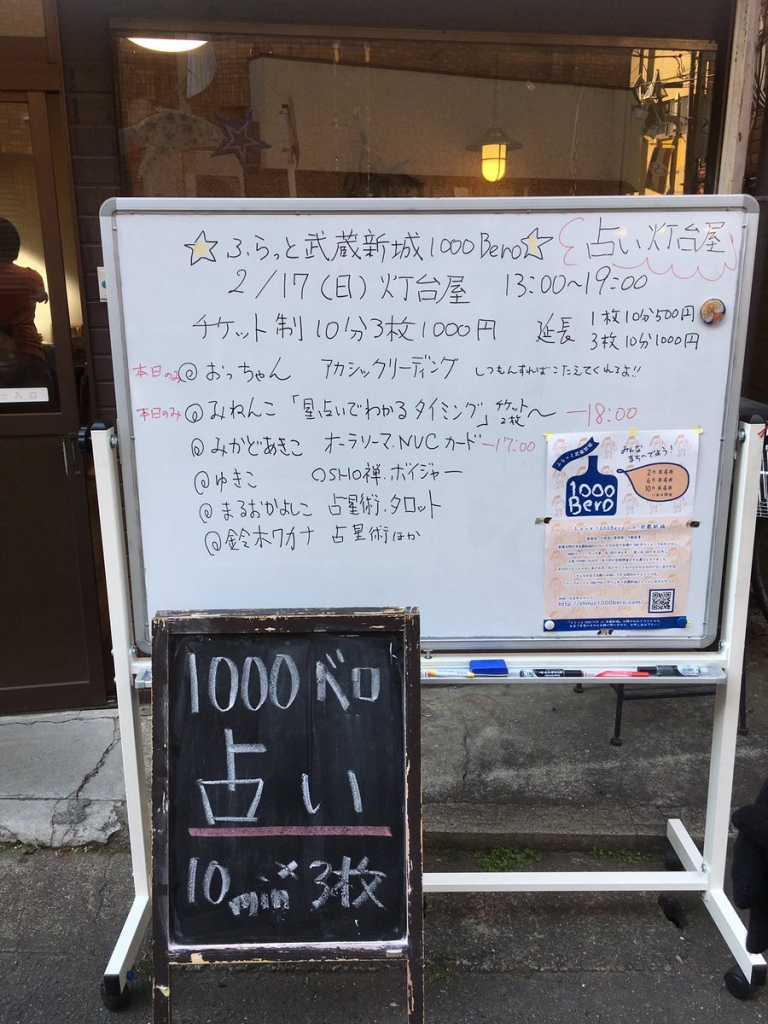 ☆ふらっと武蔵新城1000Bero☆ 占い灯台屋
2/17(日)灯台屋 13:00~19:00
チケット制10分3枚1000円 延長 1枚10分500円
3枚10分1000円
本日のみ@おっちゃん アカシックリーディング しつもんすればこたえてくれるよ!!
本日のみ@みねんこ「星占いでわかるタイミング」チケット2枚~ー18:00
@みかどあきこ オーラリーマ.NVCカードー17:00
@ゆきこ OSHO禅.ボイジャー
@まるおかよしこ 占星術.タロット
@鈴木ワカナ 占星術ほか
みんな
まちのでよう!
1000
Bero
2月第4週
6月第4週
10月第4週
http://shinjo1000bero.com/
1000ベロ
占い
10min×3枚